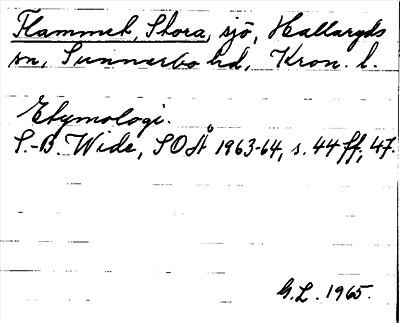 Flammet, Stora, sjö, Hallaryds
sn, Sunnerbo hd, Kron. l.
Etymologi.
S.-B. Wide, SOÅ 1963-64, s. 44 ff, 47.
G.L. 1965.